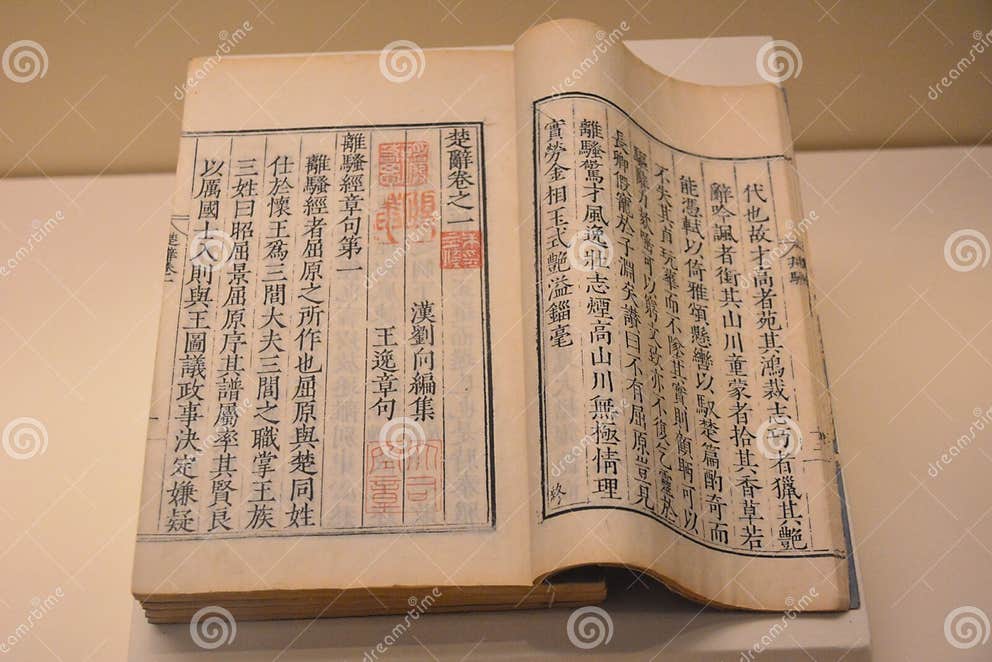 代也故才高者苑其鴻裁志巧者獵其艷
辭吟諷者銜其山川童蒙者拾其香草若
能憑軾以倚雅頌懸轡以馭楚篇酌奇而
不失其貞玩華而不墜其實則顧盼可以
驅辭力欬唾可以窮文致亦不復乞靈於
長卿假寵於子淵矣讃曰不有屈原豈見
離騷驚才風逸壯志煙高山川無極情理
實勞金相玉式艷溢錙毫
終
楚辭卷之一
漢劉向編集
王逸章句
離騷經章句第一
離騷經者屈原之所作也屈原與楚同姓
仕於懷王為三閭大夫三閭之職掌王族
三姓曰昭屈景屈原序其譜屬率其賢良
以厲國士入則與王圖議政事決定嫌疑
楚辭卷一
dreamstime